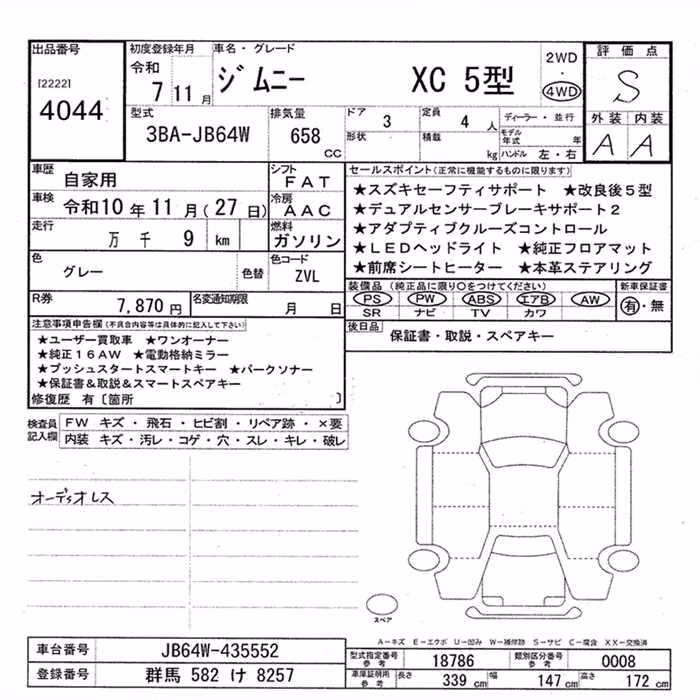 出品番号 初度登録年月 車名・グレード 2WD ・ 4WD 評価点
[2222] 令和 7 11月 ジムニー XC 5型 S
4044 型式 排気量 ドア 3 定員 4人 ディーラー・並行 外装 内装
3BA-JB64W 658 CC 形状 積載 kg モデル年式 年 ハンドル 左・右 A A
車歴 自家用 シフト FAT セールスポイント(正常に機能するものに限ります)
車検 令和10年11月(27日) 冷房 AAC ★スズキセーフティサポート ★改良後5型
走行 万 千 9 km 燃料 ガソリン ★デュアルセンサーブレーキサポート2
★アダプティブクルーズコントロール
★LEDヘッドライト ★純正フロアマット
★前席シートヒーター ★本革ステアリング
色 グレー 色替 色コード ZVL
装備品(純正品に限り○をつけてください) 新車保証書
PS PW ABS エアB AW 有・無
SR ナビ TV カワ
R券 7,870円 名変通知期限 月 日
後日品 保証書・取説・スペアキー
注意事項申告欄(不具合内容等は具体的に記入して下さい)
★ユーザー買取車 ★ワンオーナー
★純正16AW ★電動格納ミラー
★プッシュスタートスマートキー ★パークソナー
★保証書&取説&スマートスペアキー
修復歴 有〔箇所 〕
検査員記入欄 FW キズ・飛石・ヒビ割・リペア跡・×要
内装 キズ・汚レ・コゲ・穴・スレ・キレ・破レ
オーディオレス
スペア
A-キズ E-エクボ U-凹み W-補修跡 S-サビ C-腐食 XX-交換済
車台番号 JB64W-435552 型式指定番号 参考 18786 類別区分番号 参考 0008
登録番号 群馬 582 け 8257 車庫証明用 参考 長さ 339 cm 幅 147 cm 高さ 172 cm